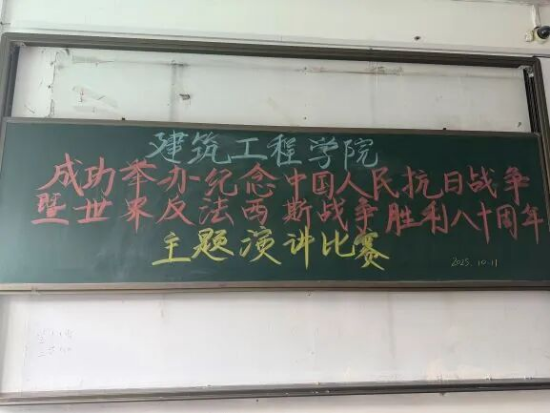 建筑工程学院
成功举办纪念中国人民抗日战争
暨世界反法西斯战争胜利八十周年
主题演讲比赛
2025.10.11